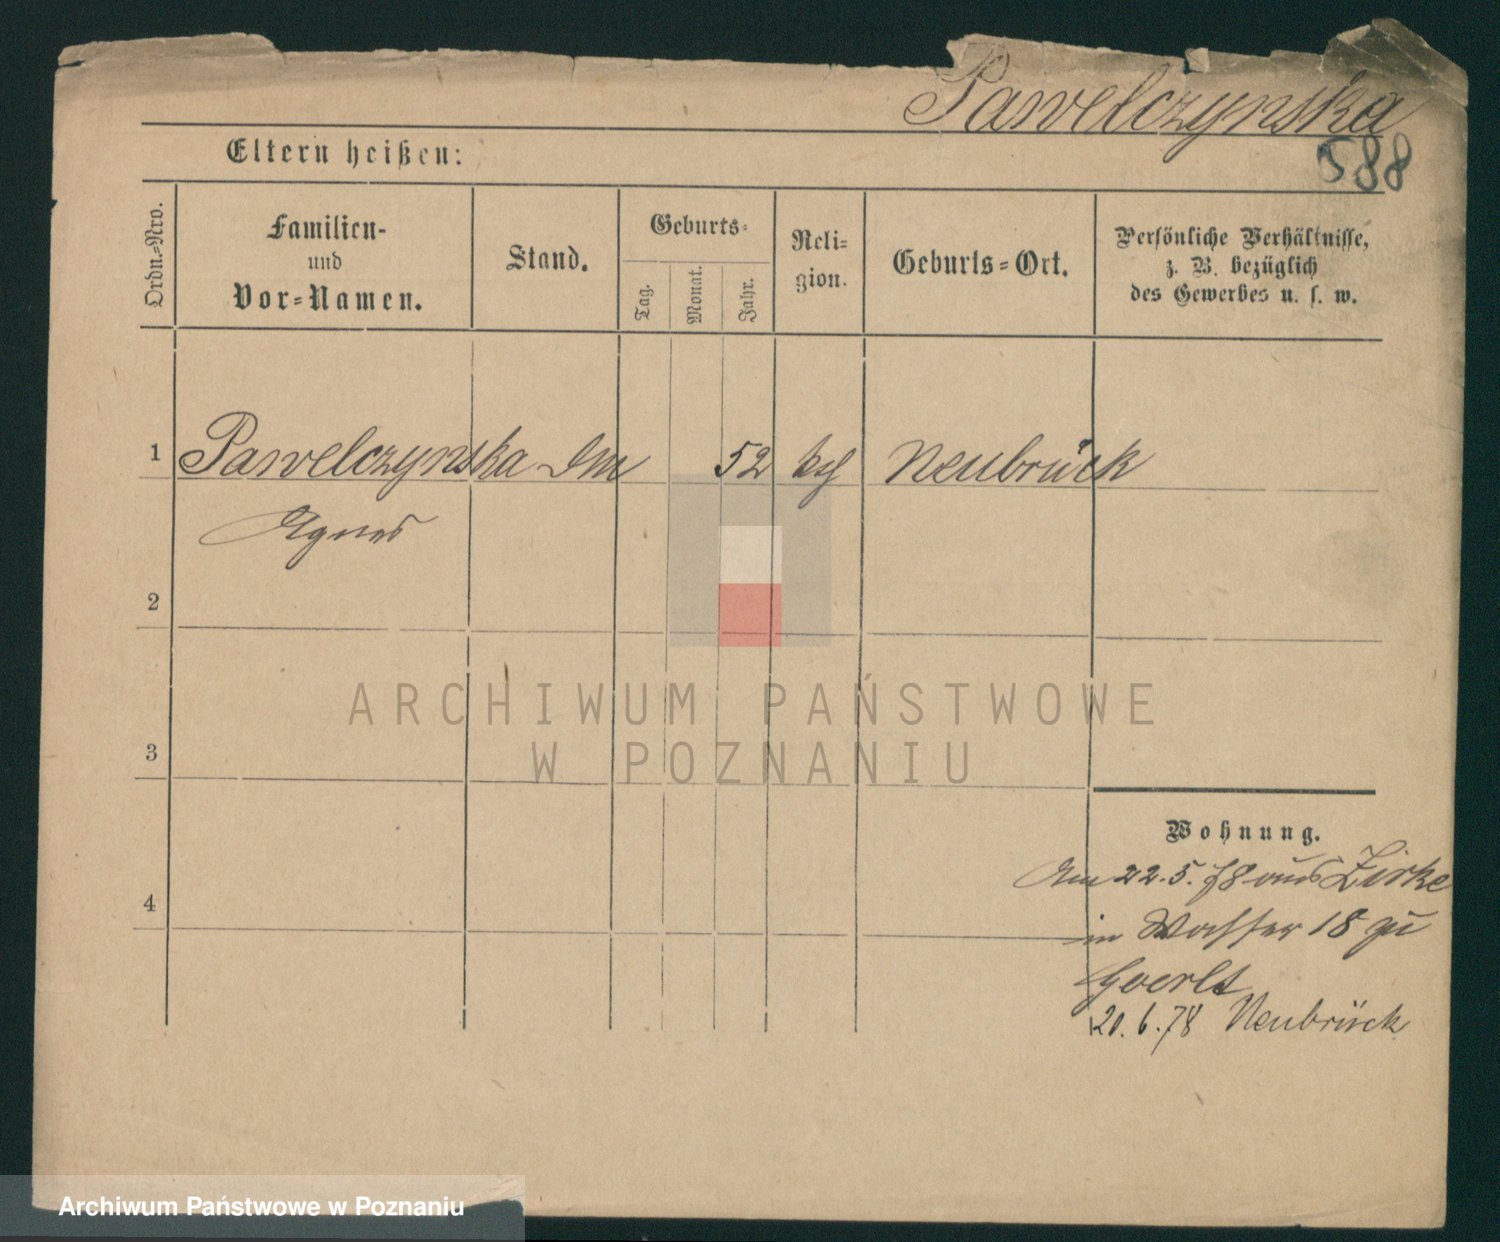 Pawelczynska
588
Eltern heißen:
Ordn.-Nro.
Familien-
und
Vor-Namen.
Stand.
Geburts-
Tag.
Monat.
Jahr.
Reli-
gion.
Geburts-Ort.
Persönliche Verhältnisse,
z. B. bezüglich
des Gewerbes u. s. w.
1 Pawelczynska 52 Neubrück
Agnes
2
3
ARCHIWUM PAŃSTWOWE
W POZNANIU
Wohnung.
Am 22.5.78 aus Zirke
4
in Wasser 18 zu
20.6.78 Neubrück
Archiwum Państwowe w Poznaniu